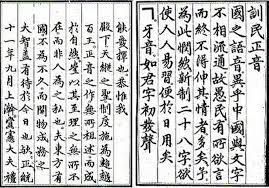 訓民正音
國之語音異乎中國與文字
不相流通故愚民有所欲言
而終不得伸其情者多矣予
為此憫然新制二十八字欲
使人人易習便於日用矣
ㄱ牙音如君字初發聲
能發揮也恭惟我
殿下天縱之聖制度施為超越
百王正音之作無所祖述而成
於自然豈以其至理之無所不
在而非人為之私也夫東方有
國不為不久而開物成務之
大智盖有待於今日也欤正統
十一年九月上澣資憲大夫禮